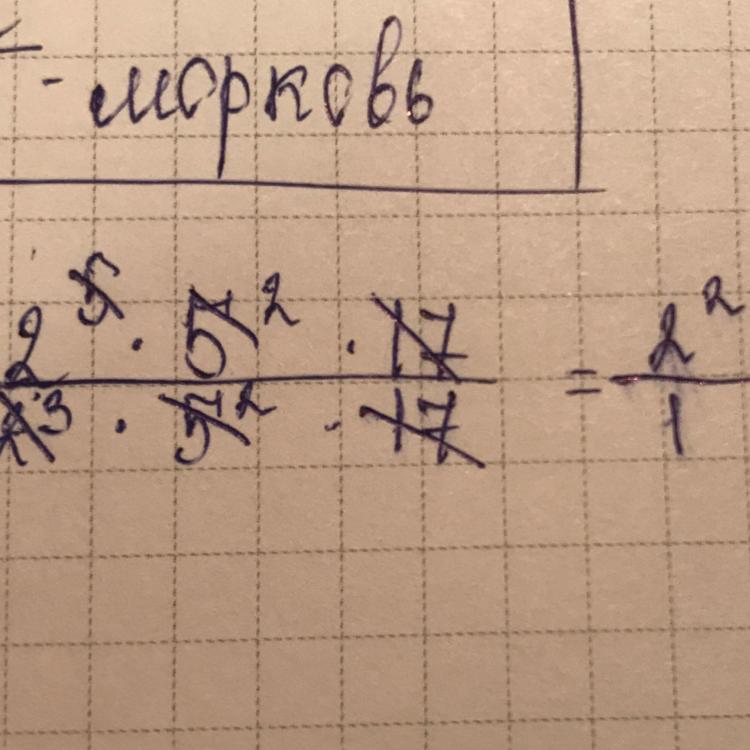 - морковь
2⁵ · 5² · 17
2³ · 5² · 17
= 2²
1